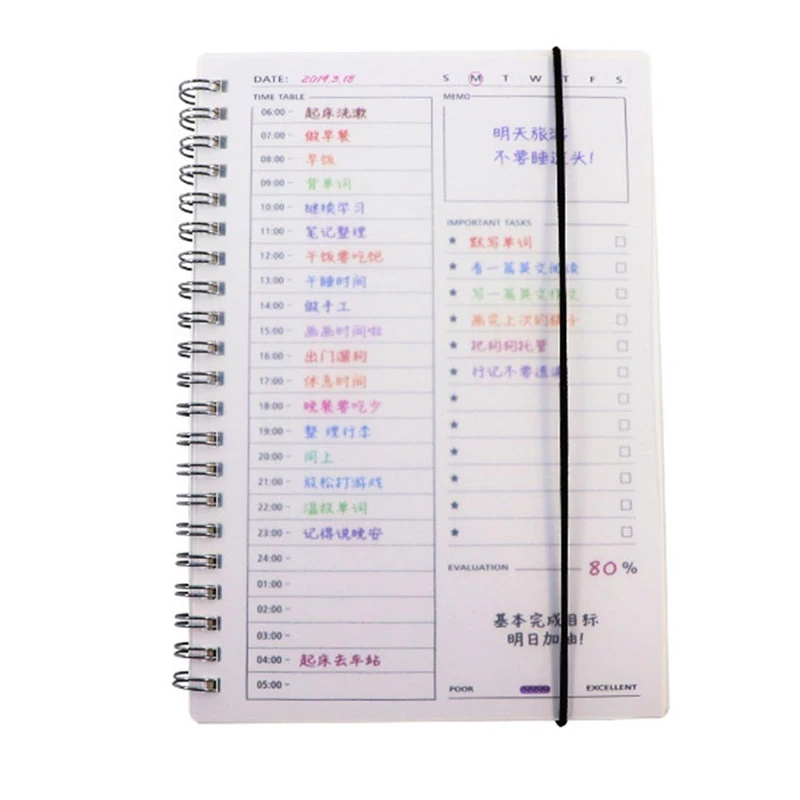 DATE: 2019.3.18
S M T W T F S
TIME TABLE
06:00 - 起床洗漱
07:00 - 做早餐
08:00 - 早饭
09:00 - 背单词
10:00 - 继续学习
11:00 - 笔记整理
12:00 - 午饭要吃饱
13:00 - 午睡时间
14:00 - 做手工
15:00 - 画画时间啦
16:00 - 出门遛狗
17:00 - 休息时间
18:00 - 晚餐要吃少
19:00 - 整理行李
20:00 - 同上
21:00 - 放松打游戏
22:00 - 温故单词
23:00 - 记得说晚安
24:00 -
01:00 -
02:00 -
03:00 -
04:00 - 起床去车站
05:00 -
MEMO
明天旅游
不要睡过头!
IMPORTANT TASKS
★ 默写单词
★ 看一篇英文阅读
★ 写一篇英文作文
★ 画完上次的
★ 把狗狗托管
★ 行记不要遗漏
★
★
★
★
★
★
EVALUATION 80 %
基本完成目标
明日加油!
POOR EXCELLENT